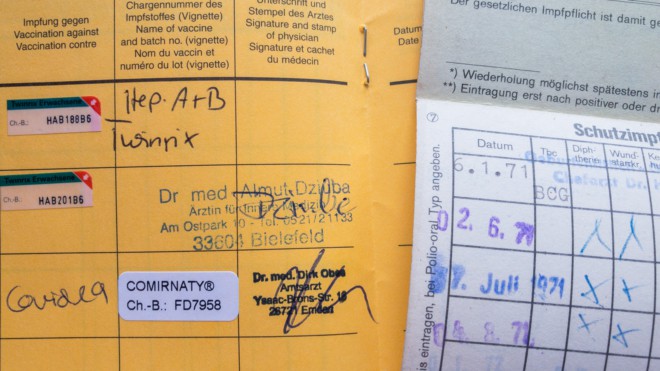 Impfung gegen
Vaccination against
Vaccination contre
Chargennummer des
Impfstoffes (Vignette)
Name of vaccine
and batch no. (vignette)
Nom du vaccin et
numéro du lot (vignette)
Unterschrift und
Stempel des Arztes
Signature and stamp
of physician
Signature et cachet
du médecin
Datum
Date
Twinrix Erwachsene
Ch.-B.: HAB188B6
Hep. A+B
Twinrix
Twinrix Erwachsene
Ch.-B.: HAB201B6
Dr med Almut Dziuba
Ärztin für Innere Medizin
Am Ostpark 10 - Tel. 0521/21133
33604 Bielefeld
Covid19
COMIRNATY®
Ch.-B.: FD7958
Dr. med. Dirk Obes
Amtsarzt
Ysaac-Brons-Str. 16
26721 Emden
Der gesetzlichen Impfpflicht ist damit ge
*) Wiederholung möglichst spätestens in
**) Eintragung erst nach positiver oder dr
7
is eintragen, bei Polio-oral Typ angeben.
Schutzimpf
Datum
Tbc
Diph-
therie
Wund-
starrkr.
6.1.71
BCG
2. 6. 71
Juli 1971